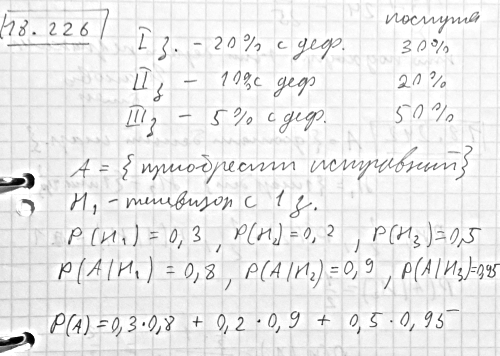 18.226
поступа
I з. - 20% с деф. 30%
II з - 10% с деф 20%
III з - 5% с деф. 50%
A = {приобрести исправный}
H₁ - телевизор с 1 з.
P(H₁) = 0,3 , P(H₂) = 0,2 , P(H₃) = 0,5
P(A|H₁) = 0,8 , P(A|H₂) = 0,9 , P(A|H₃) = 0,95
P(A) = 0,3·0,8 + 0,2·0,9 + 0,5·0,95